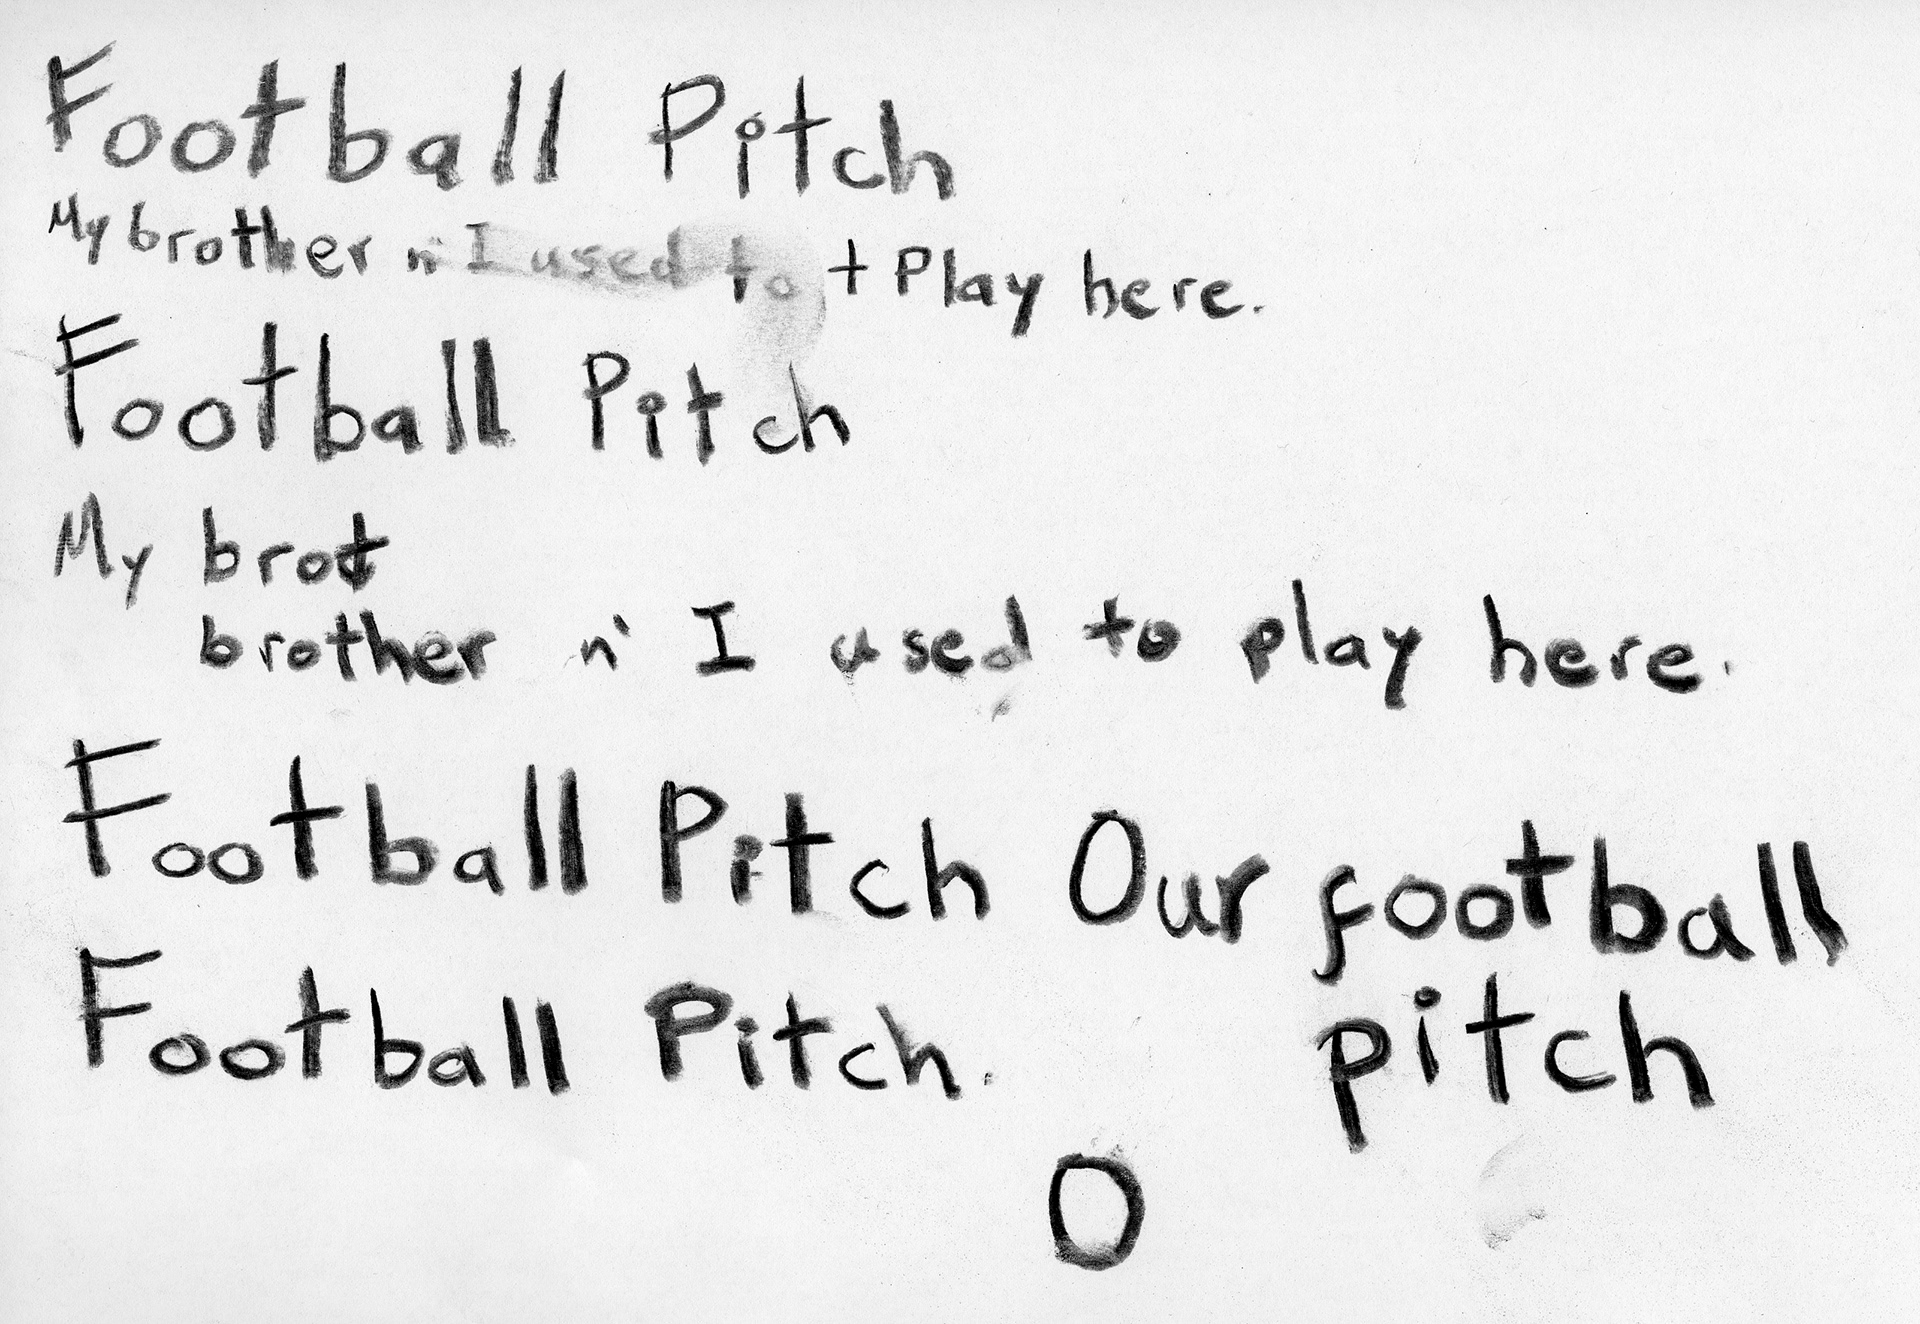 Football Pitch
My brother n' I used to t Play here.
Football Pitch
My brot
brother n' I used to play here.
Football Pitch Our football
Football Pitch. pitch
O